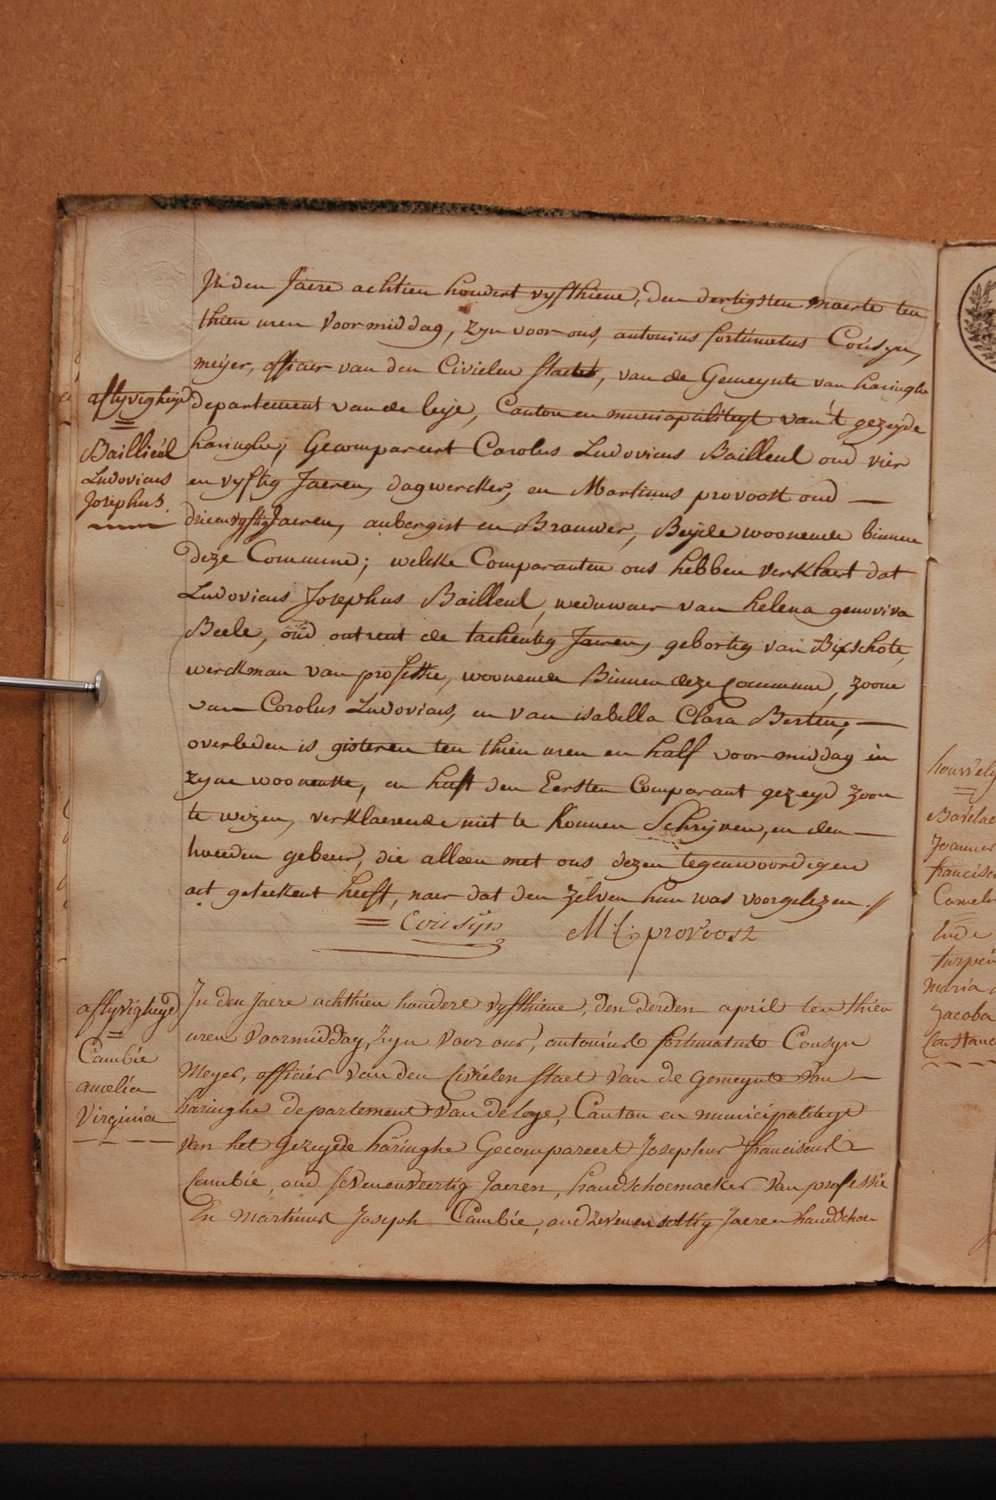 In den Jaere achtien hondert vyfthiene, den dertigsten maerte ten
thien uren voormiddag, zyn voor ons, antonius fortunatus Coüsyn,
meijer, officier van den Civielen staet, van de Gemeynte van haringhe
departement van de leije, Canton en municipaliteyt van 't gezeyde
haringhe, Gecompareert Carolus Ludovicus Bailleul oud vier
en vyftig Jaeren, dagwercker, en Martinus provoost oud —
drienvyftig Jaeren, aubergist en Brauwer, Beijde woonende binnen
deze Commune; welcke Comparanten ons hebben verklaert dat
Ludovicus Josephus Bailleul, weduwaer van helena genoviva
Beele, oüd ontrent de tachentig Jaeren, gebortig van Bixschote,
werckman van professie, woonende Binnen deze Commune, zoone
van Corolus Ludovicus, en van isabella Clara Berten, —
overleden is gisteren ten thien uren en half voormiddag in
zyne woonente, en heeft den Eersten Comparant gezeyd zoon
te wezen, verklaerende niet te konnen Schrijven, en den —
tweeden gebeur, die alleen met ons dezen tegenwoordigen
act geteekent heeft, naer dat den zelven hun was voorgelezen.//
= Coüsÿn M: C: provoost
aflyvigheyd
=
Baillieül
Ludovicus
Josephus.
In den Jaere achthien hondert vyfthiene, den derden april ten thien
uren voormiddag, zyn voor ons, antonius fortunatus Cousyn
Meyer, officier van den Civielen staet van de gemeynte van —
haringhe departement van de Leye, Canton en municipaliteyt
van het gezeyde haringhe Gecompareert Josephus franciscus
Cambie, oud sevenenveertig Jaeren, handschoemaeker van professie
En martinus Joseph Cambie, oud zevenensestig Jaeren handschoe-
aflyvigheyd
=
Cambie
amelia
Virginia
houwely
=
Joannes
francisc
Camelu
Ende
turpin
maria
Jacoba
Constanc